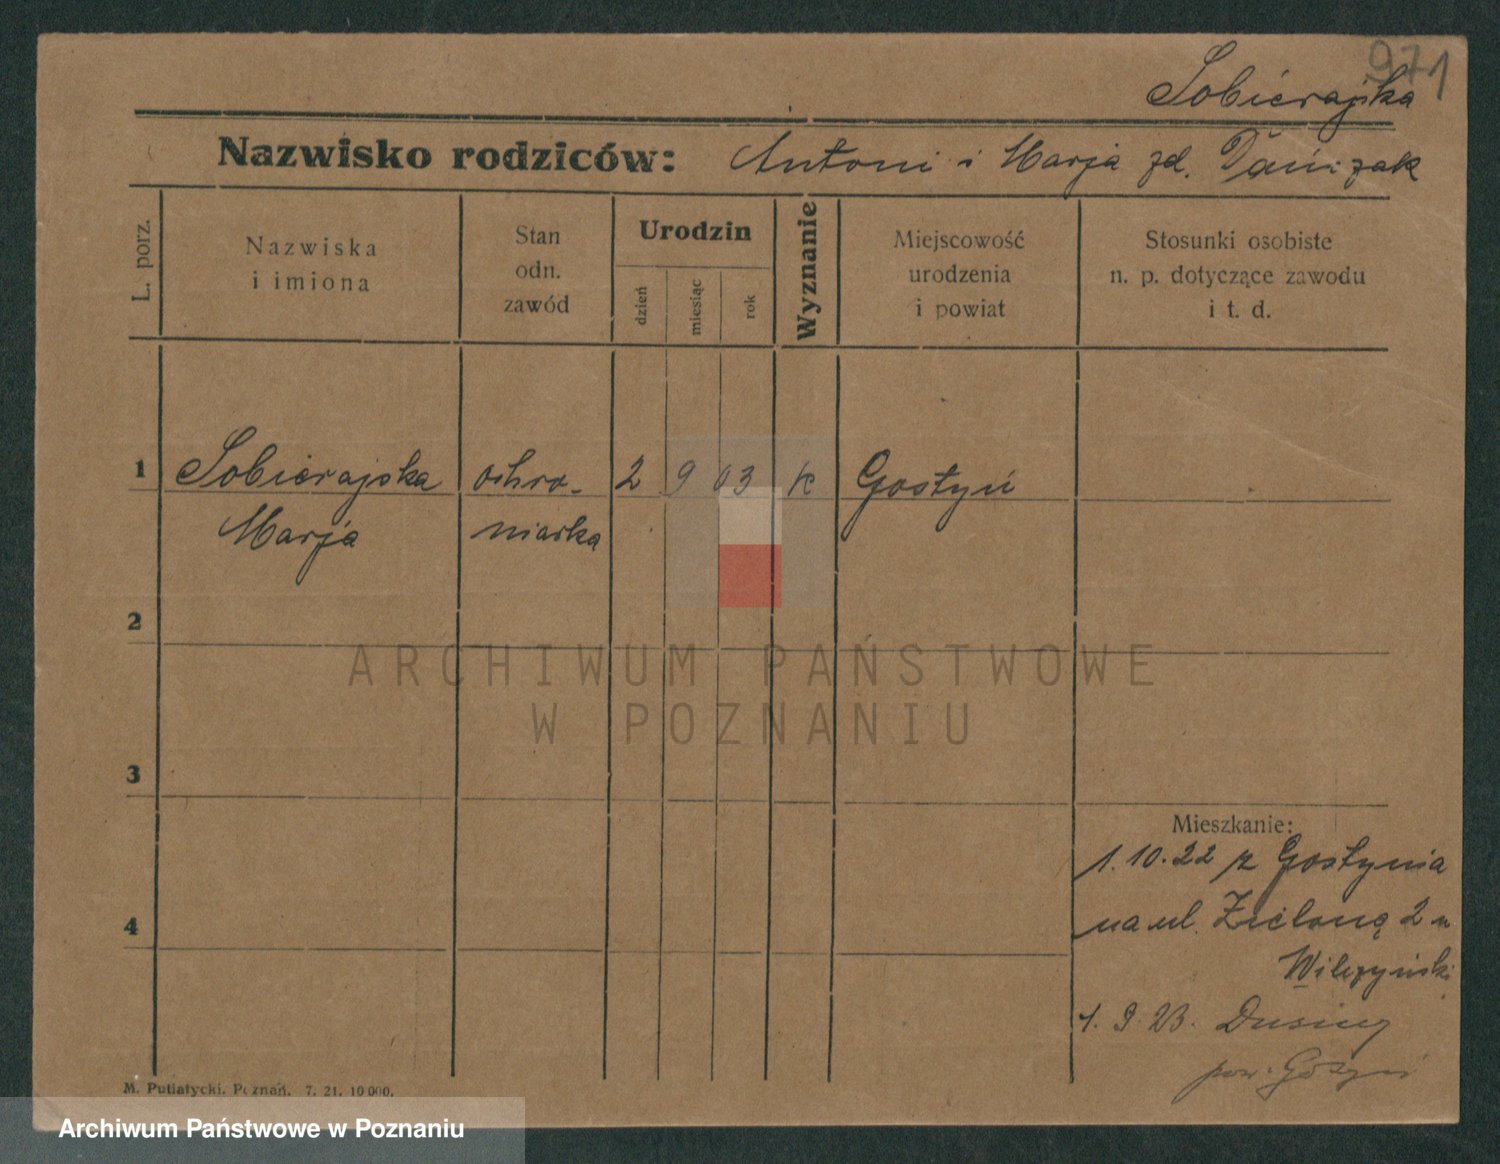 971
Sobierajska
Nazwisko rodziców: Antoni i Marja zd. Dańczak
L. porz.
Nazwiska
i imiona
Stan
odn.
zawód
Urodzin
dzień
miesiąc
rok
Wyznanie
Miejscowość
urodzenia
i powiat
Stosunki osobiste
n. p. dotyczące zawodu
i t. d.
1 Sobierajska ochro- 2 9 03 k Gostyń
Marja niarka
2
ARCHIWUM PAŃSTWOWE
W POZNANIU
3
Mieszkanie:
1.10.22 z Gostynia
4
na ul. Zieloną 2 u
Wilczyński
1. 9. 23. Dusiny
pow. Gostyń
M. Putiatycki, Poznań. 7. 21. 10 000.
Archiwum Państwowe w Poznaniu